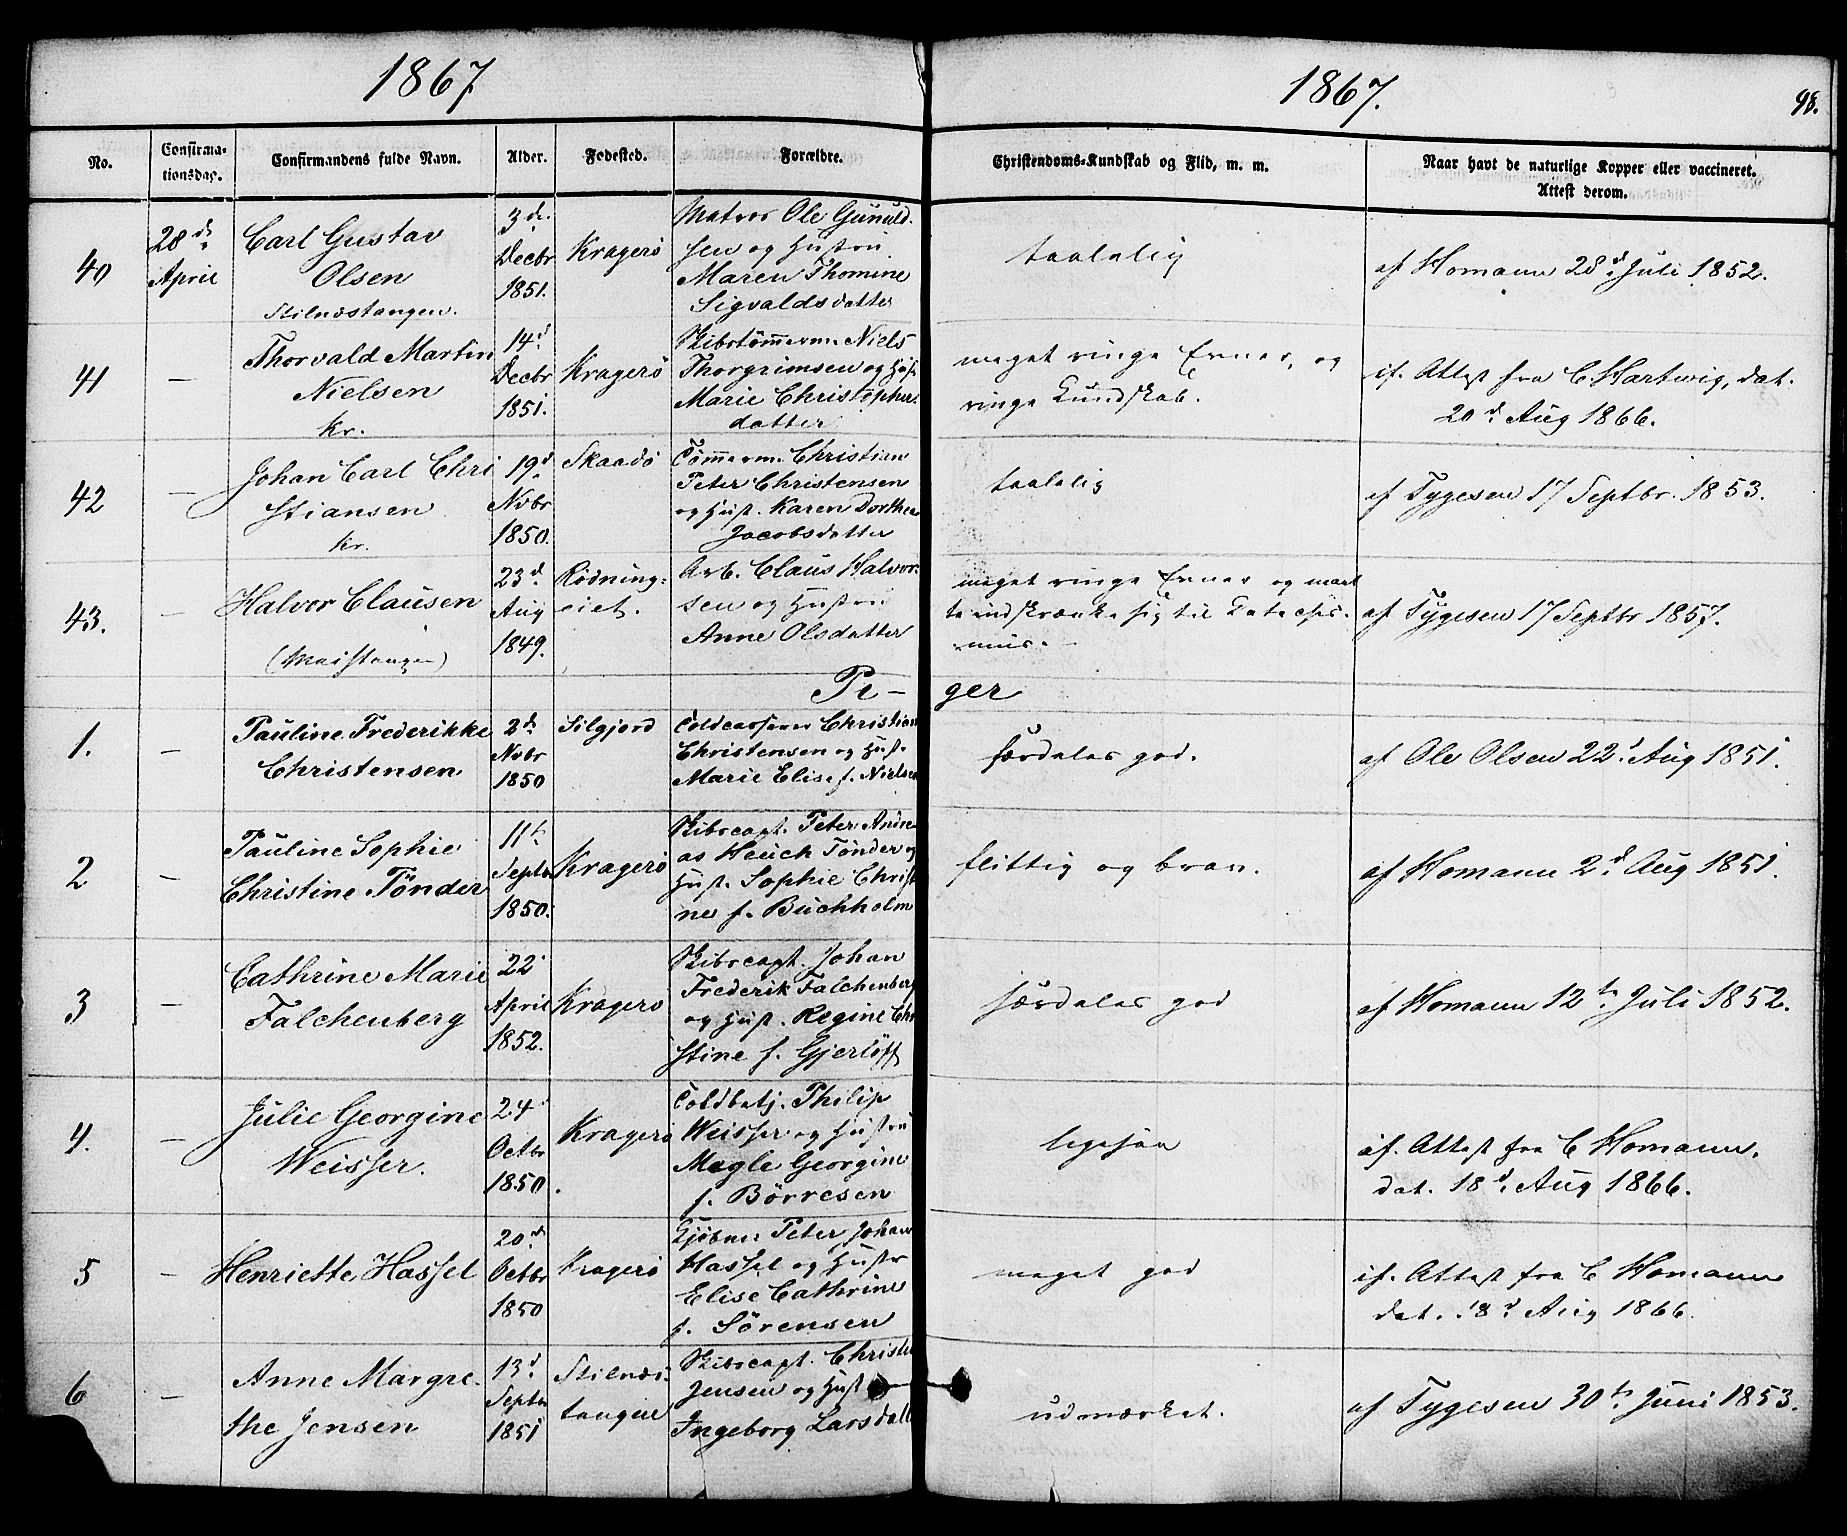 1867
1867.
98.
No.
Confirma-
tionsdag.
Confirmandens fulde Navn.
Alder.
Fødested.
Forældre.
Christendoms-Kundskab og Flid, m. m.
Naar havt de naturlige Kopper eller vaccineret.
Attest derom.
40
28de
April
Carl Gustav
Olsen
Stilnæstangen.
3de
Decbr
1851.
Kragerö
Matros Ole Gunuld-
sen og Hustru
Maren Thomine
Sigvaldsdatter
taalelig
af Homann 28d Juli 1852.
41
—
Thorvald Martin
Nielsen
Kr.
14d
Decbr
1851.
Kragerö
Skibstömmerm. Niels
Thorgrimsen og Hust
Marie Christopher-
datter
meget ringe Evner, og
ringe Kundskab.
if. Attest fra C Hartwig, dat.
20d Aug 1866.
42
—
Johan Carl Chri
stiansen
Kr.
19d
Nvbr
1850.
Skaadö
Tömmerm. Christian
Peter Christensen
og Hust. Karen Dorthea
Jacobsdatter
taalelig
af Tygesen 17 Septbr. 1853.
43.
—
Halvor Clausen
23d.
Aug
1849.
Rödning-
eiet.
Arb. Claus Halvor-
sen og Hustru
Anne Olsdatter
meget ringe Evner og maat
te indskrænke sig til Catechis-
mus. —
af Tygesen 17 Septbr 1857.
Pi-
ger
1.
—
Pauline Frederikke
Christensen
2d
Nvbr
1850
Silgjord
Toldcasserer Christian
Christensen og Hust.
Marie Elise f. Nielsen
særdeles god.
af Ole Olsen 22d Aug 1851.
2
—
Pauline Sophie
Christine Tönder
11t
Septbr
1850.
Kragerö
Skibscapt. Peter Andre
as Heuch Tönder og
Hust. Sophie Christi
ne f. Buchholm
flittig og brav.
af Homann 2d Aug 1851.
3
—
Cathrine Marie
Falchenberg
22
April
1852.
Kragerö
Skibscapt. Johan
Frederik Falchenberg
og Hust. Regine Chri
stine f. Gjerlöff
særdeles god
af Homann 12te Juli 1852.
4.
—
Julie Georgine
Weisser.
24
Octbr
1850.
Kragerö
Toldbetj. Philip
Weisser og Hustru
Magle Georgine
f. Börresen
ligesaa
if. Attest fra C Homann.
dat. 18d Aug 1866.
5
—
Henriette Hassel
20d.
Octbr
1850
Kragerö
Kjöbm. Peter Johan
Hassel og Hustr
Elise Cathrine
f. Sörensen
meget god
if. Attest fra C Homann
dat. 18d Aug 1866.
6
—
Anne Margre-
the Jensen
13d
Septbr
1851
Stilnæs-
tangen
Skibscapt. Christen
Jensen og Hust
Ingeborg Larsdatt
udmærket.
af Tygesen 30te Juni 1853.